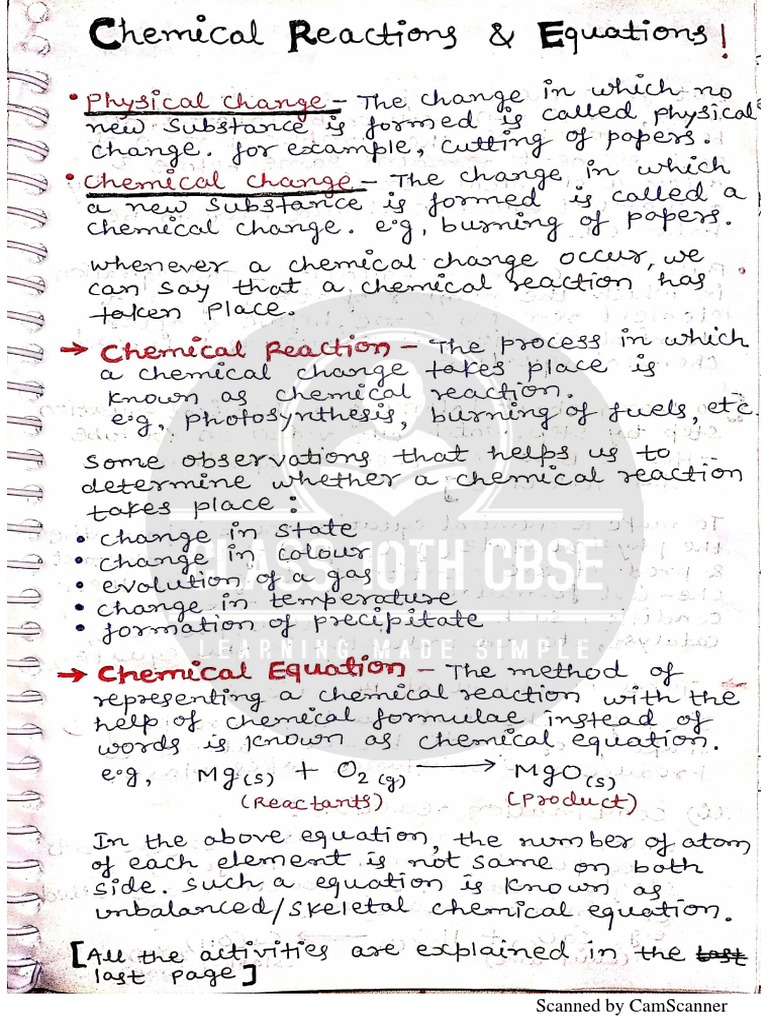 Chemical Reactions & Equations!
• Physical change - The change in which no
new substance is formed is called physical
change. for example, cutting of papers.
• Chemical change - The change in which
a new substance is formed is called a
chemical change. e.g, burning of papers.
whenever a chemical change occur, we
can say that a chemical reaction has
taken place.
→ Chemical Reaction - The process in which
a chemical change takes place is
known as chemical reaction.
e.g, photosynthesis, burning of fuels, etc.
some observations that helps us to
determine whether a chemical reaction
takes place :
• change in state
• change in colour
• evolution of a gas
• change in temperature
• formation of precipitate
CLASS 10TH CBSE
LEARNING MADE SIMPLE
→ Chemical Equation - The method of
representing a chemical reaction with the
help of chemical formulae instead of
words is known as chemical equation.
e.g, Mg(s) + O2 (g) ⟶ MgO(s)
(Reactants) (Product)
In the above equation, the number of atom
of each element is not same on both
side. Such a equation is known as
unbalanced/skeletal chemical equation.
[All the activities are explained in the last
last page]
Scanned by CamScanner